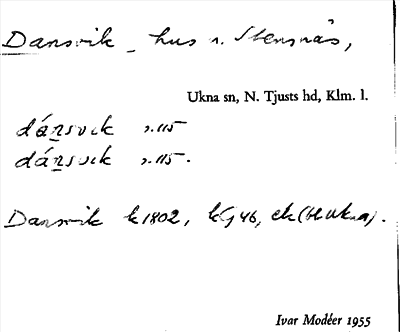 Dansvik - hus u. Stensnäs,
Ukna sn, N. Tjusts hd, Klm. l.
dánsvik s. 115
dánsvik s. 115.
Dansvik k 1802, kG 46, ek (bl Ukna).
Ivar Modéer 1955